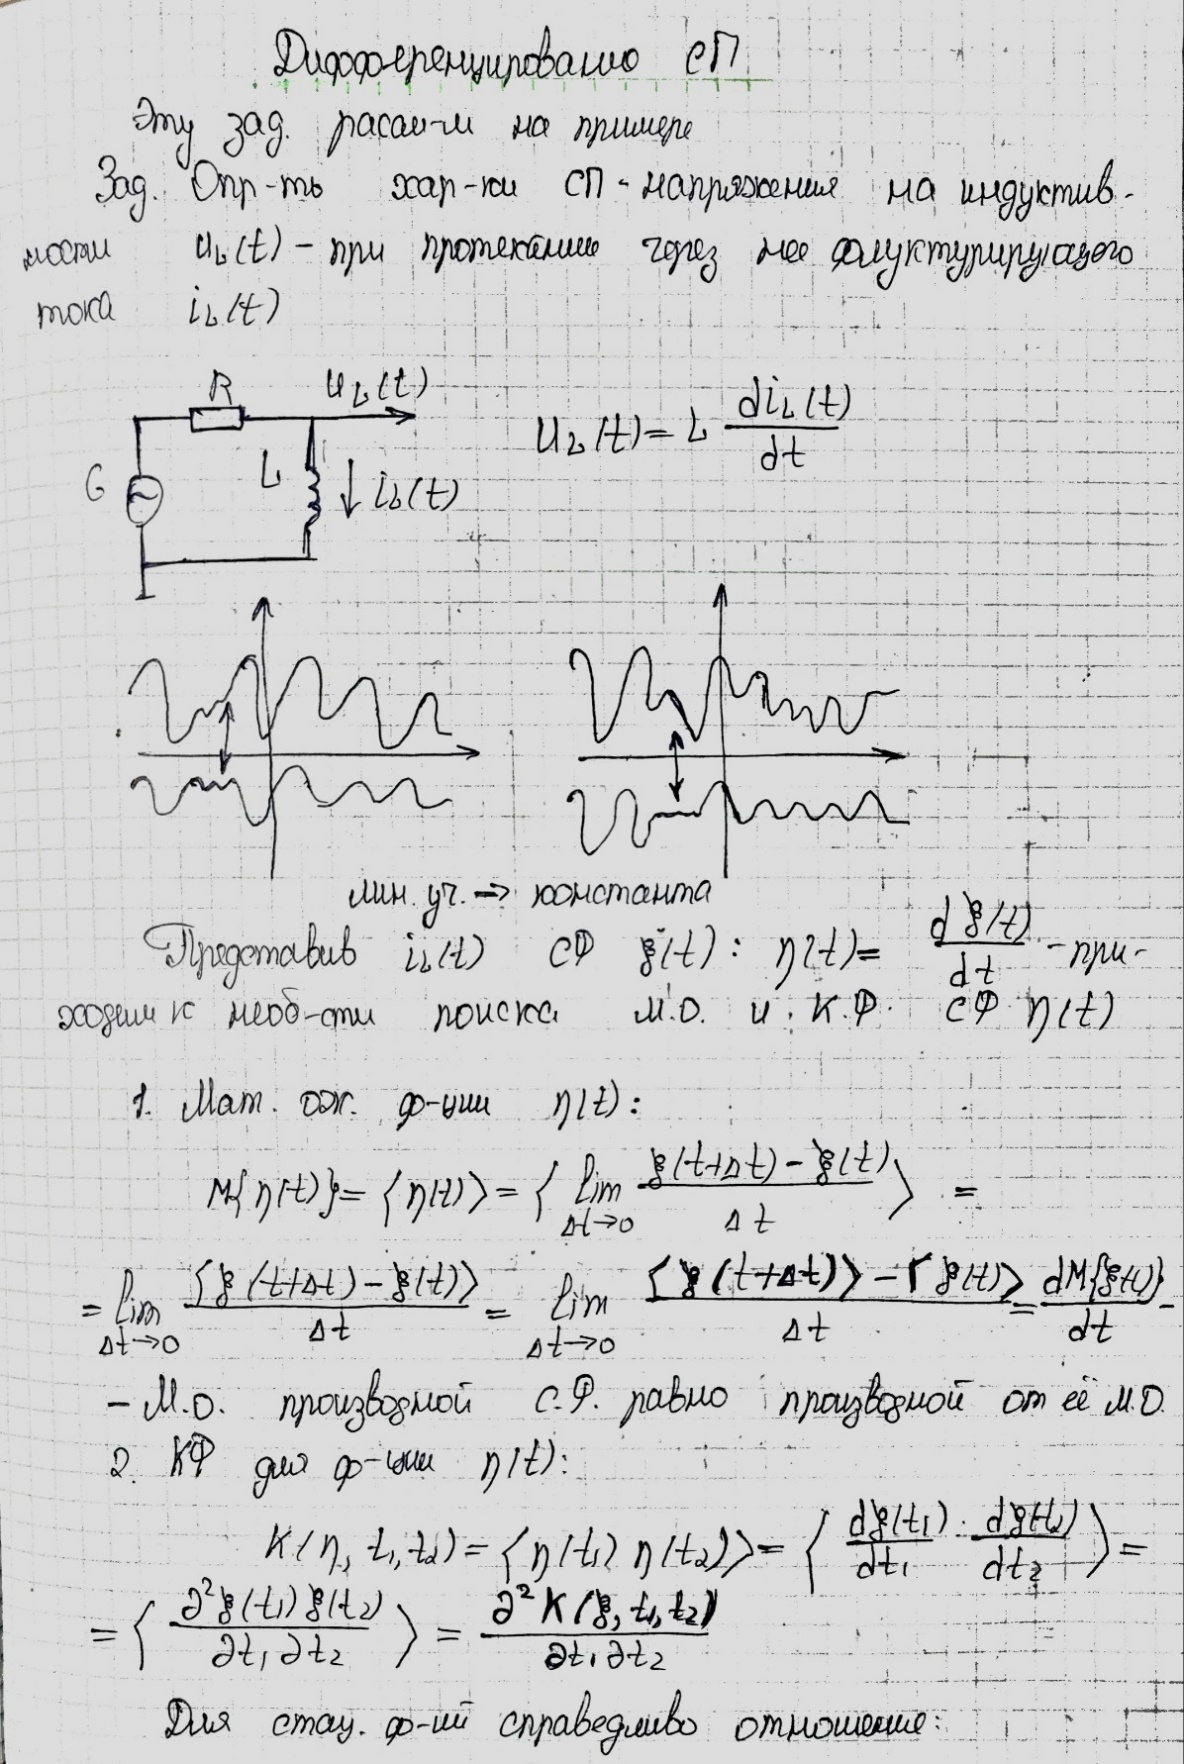 Дифференцированию СП
Эту зад. расс-м на примере
Зад. Опр-ть хар-ки СП - напряжения на индуктив-
ности u_L(t) - при протекании через нее флуктурирующего
тока i_L(t)
R u_L(t)
u_L(t) = L di_L(t)/dt
G L i_L(t)
лин. уч. => константа
Представив i_L(t) СФ ξ(t): η(t) = dξ(t)/dt - при-
ходим к необ-сти поиска М.О. и К.Ф. СФ η(t)
1. Мат. ож. ф-ции η(t):
M{η(t)} = ⟨η(t)⟩ = ⟨ lim Δt→0 (ξ(t+Δt) - ξ(t))/Δt ⟩ =
= lim Δt→0 ⟨ξ(t+Δt) - ξ(t)⟩/Δt = lim Δt→0 (⟨ξ(t+Δt)⟩ - ⟨ξ(t)⟩)/Δt = dM{ξ(t)}/dt -
- М.О. производной С.Ф. равно производной от её М.О.
2. КФ для ф-ции η(t):
K(η, t₁, t₂) = ⟨η(t₁) η(t₂)⟩ = ⟨ dξ(t₁)/dt₁ · dξ(t₂)/dt₂ ⟩ =
= ⟨ ∂²ξ(t₁)ξ(t₂)/∂t₁∂t₂ ⟩ = ∂²K(ξ, t₁, t₂)/∂t₁∂t₂
Для стац. ф-ий справедливо отношение: